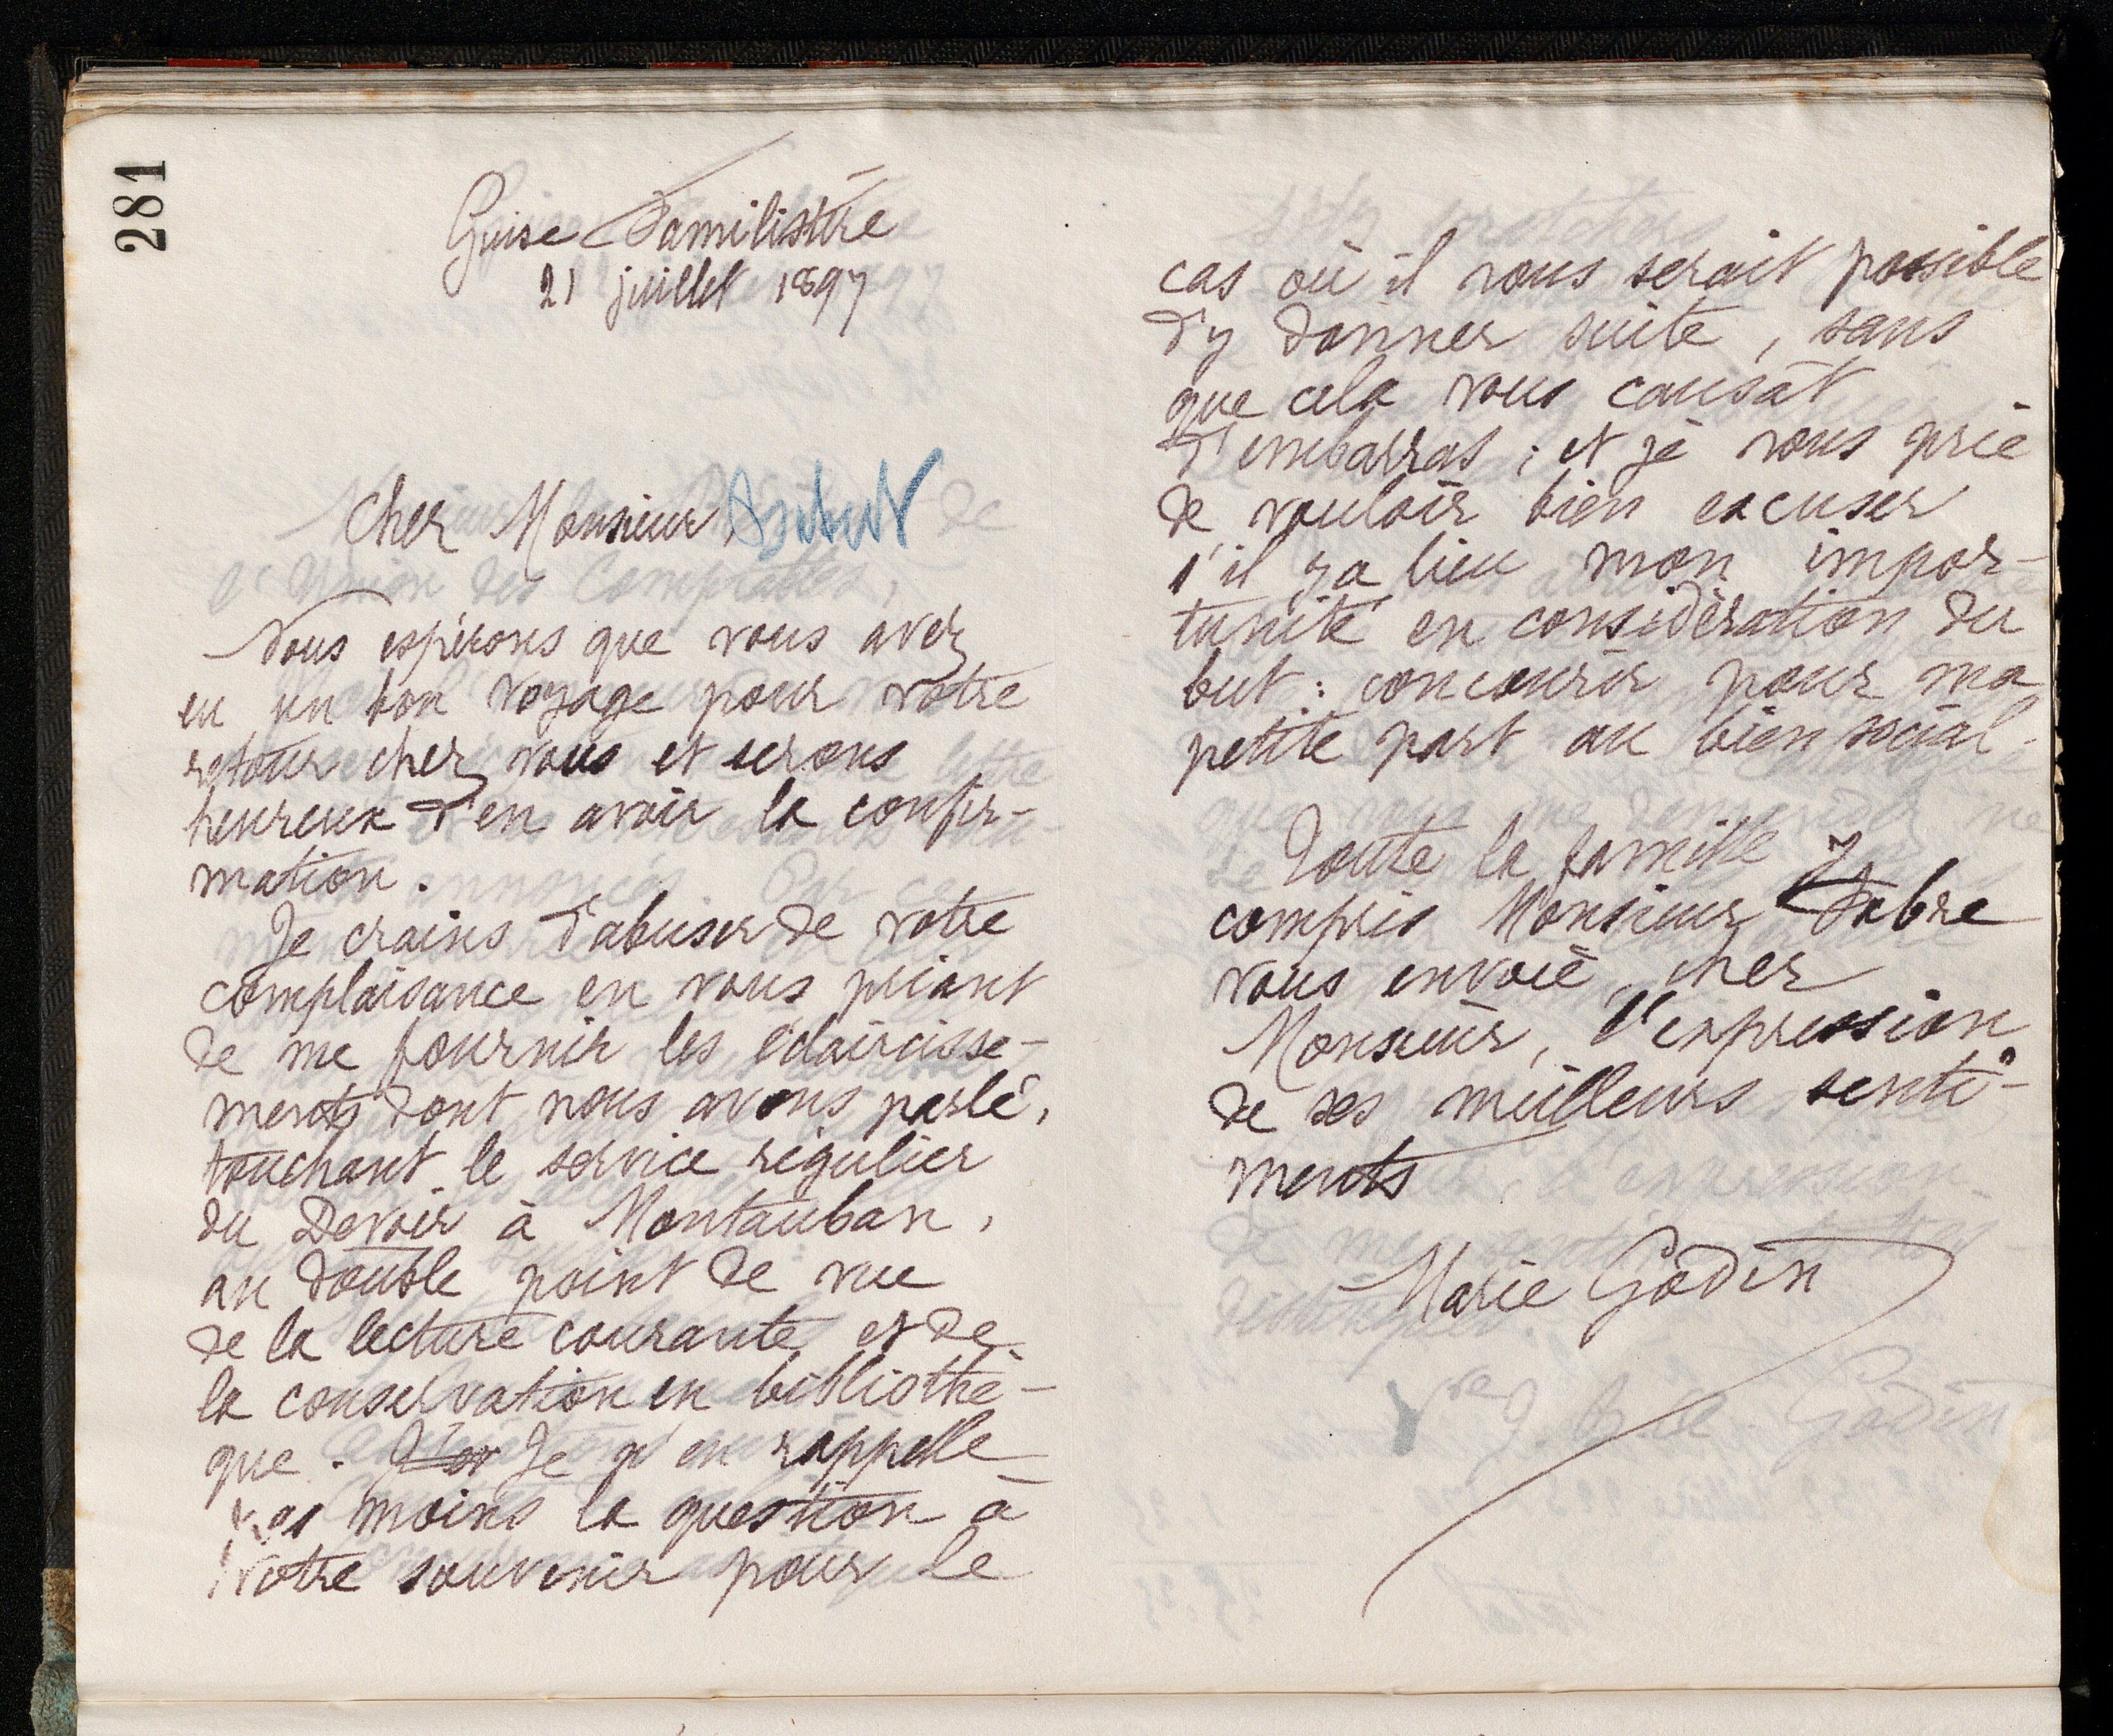 281
Guise Familistère
21 juillet 1897
Cher Monsieur
Nous espérons que vous avez
eu un bon voyage pour votre
retour chez vous et serons
heureux d'en avoir la confir-
mation.
Je crains d'abuser de votre
complaisance en vous priant
de me fournir les éclaircisse-
ments dont nous avons parlé,
touchant le service régulier
du Devoir à Montauban,
au double point de vue
de la lecture courante et de
la conservation en bibliothè-
que. Je n'en rappelle
moins la question à
votre souvenir pour le
cas où il vous serait possible
d'y donner suite, sans
que cela vous causât
d'embarras; et je vous prie
de vouloir bien excuser
s'il y a lieu mon impor-
tunité en considération du
but: concourir pour ma
petite part au bien social.
Toute la famille y
compris Monsieur Fabre
vous envoie, cher
Monsieur, l'expression
de ses meilleurs senti-
ments
Marie Godin